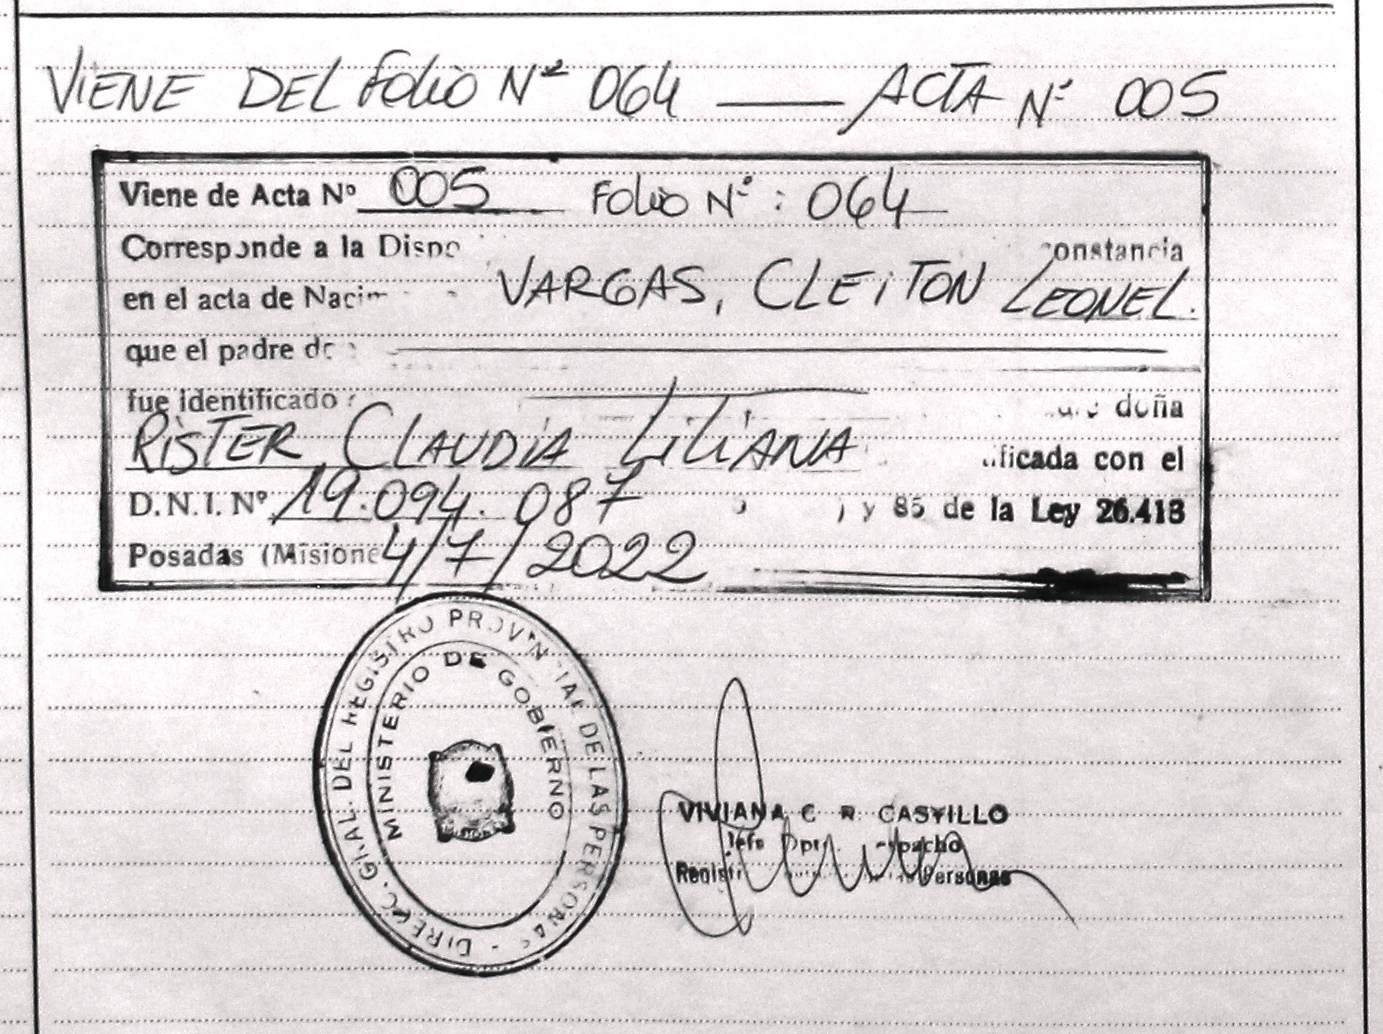 VIENE DEL FOLIO Nº 064 —— ACTA Nº 005
Viene de Acta Nº 005 FOLIO Nº: 064
Corresponde a la
constancia
en el acta de
VARGAS, CLEITON LEONEL.
que el padre
fue identificado
doña
RISTER CLAUDIA LILIANA
con el
D.N.I. Nº 19.094.087
y 85 de la Ley 26.413
Posadas (Misione 4/7/2022
DIRECC. GRAL. DEL REGISTRO PROVINCIAL DE LAS PERSONAS -
MINISTERIO DE GOBIERNO
VIVIANA C. R. CASTILLO
Personas